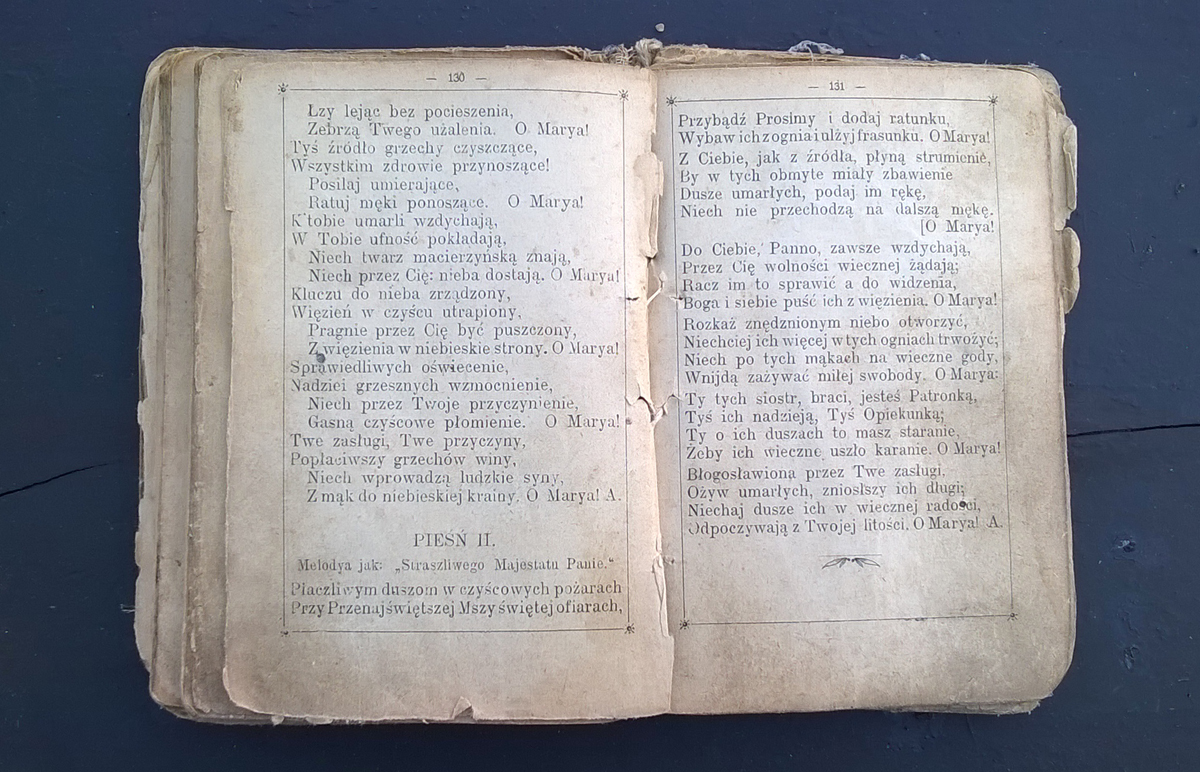 — 130 —
Łzy lejąc bez pocieszenia,
Zebrzą Twego użalenia. O Marya!
Tyś źródło grzechy czyszczące,
Wszystkim zdrowie przynoszące!
Posilaj umierające,
Ratuj męki ponoszące. O Marya!
K'tobie umarli wzdychają,
W Tobie ufność pokładają,
Niech twarz macierzyńską znają,
Niech przez Cię: nieba dostają. O Marya!
Kluczu do nieba zrządzony,
Więzień w czyścu utrapiony,
Pragnie przez Cię być puszczony,
Z więzienia w niebieskie strony. O Marya!
Sprawiedliwych oświecenie,
Nadziei grzesznych wzmocnienie,
Niech przez Twoje przyczynienie,
Gasną czyścowe płomienie. O Marya!
Twe zasługi, Twe przyczyny,
Popłaciwszy grzechów winy,
Niech wprowadzą ludzkie syny,
Z mąk do niebieskiej krainy. O Marya! A.
PIEŚŃ II.
Melodya jak: „Straszliwego Majestatu Panie."
Płaczliwym duszom w czyścowych pożarach
Przy Przenajświętszej Mszy świętej ofiarach,
— 131 —
Przybądź Prosimy i dodaj ratunku,
Wybaw ich z ognia i ulżyj frasunku. O Marya!
Z Ciebie, jak z źródła, płyną strumienie,
By w tych obmyte miały zbawienie
Dusze umarłych, podaj im rękę,
Niech nie przechodzą na dalszą mękę.
[O Marya!
Do Ciebie, Panno, zawsze wzdychają,
Przez Cię wolności wiecznej żądają;
Racz im to sprawić a do widzenia,
Boga i siebie puść ich z więzienia. O Marya!
Rozkaż znędznionym niebo otworzyć,
Niechciej ich więcej w tych ogniach trwożyć;
Niech po tych mąkach na wieczne gody,
Wnijdą zażywać miłej swobody. O Marya:
Ty tych siostr, braci, jesteś Patronką,
Tyś ich nadzieją, Tyś Opiekunką;
Ty o ich duszach to masz staranie,
Żeby ich wieczne uszło karanie. O Marya!
Błogosławiona przez Twe zasługi.
Ożyw umarłych, zniosłszy ich długi;
Niechaj dusze ich w wiecznej radości,
Odpoczywają z Twojej litości. O Marya! A.